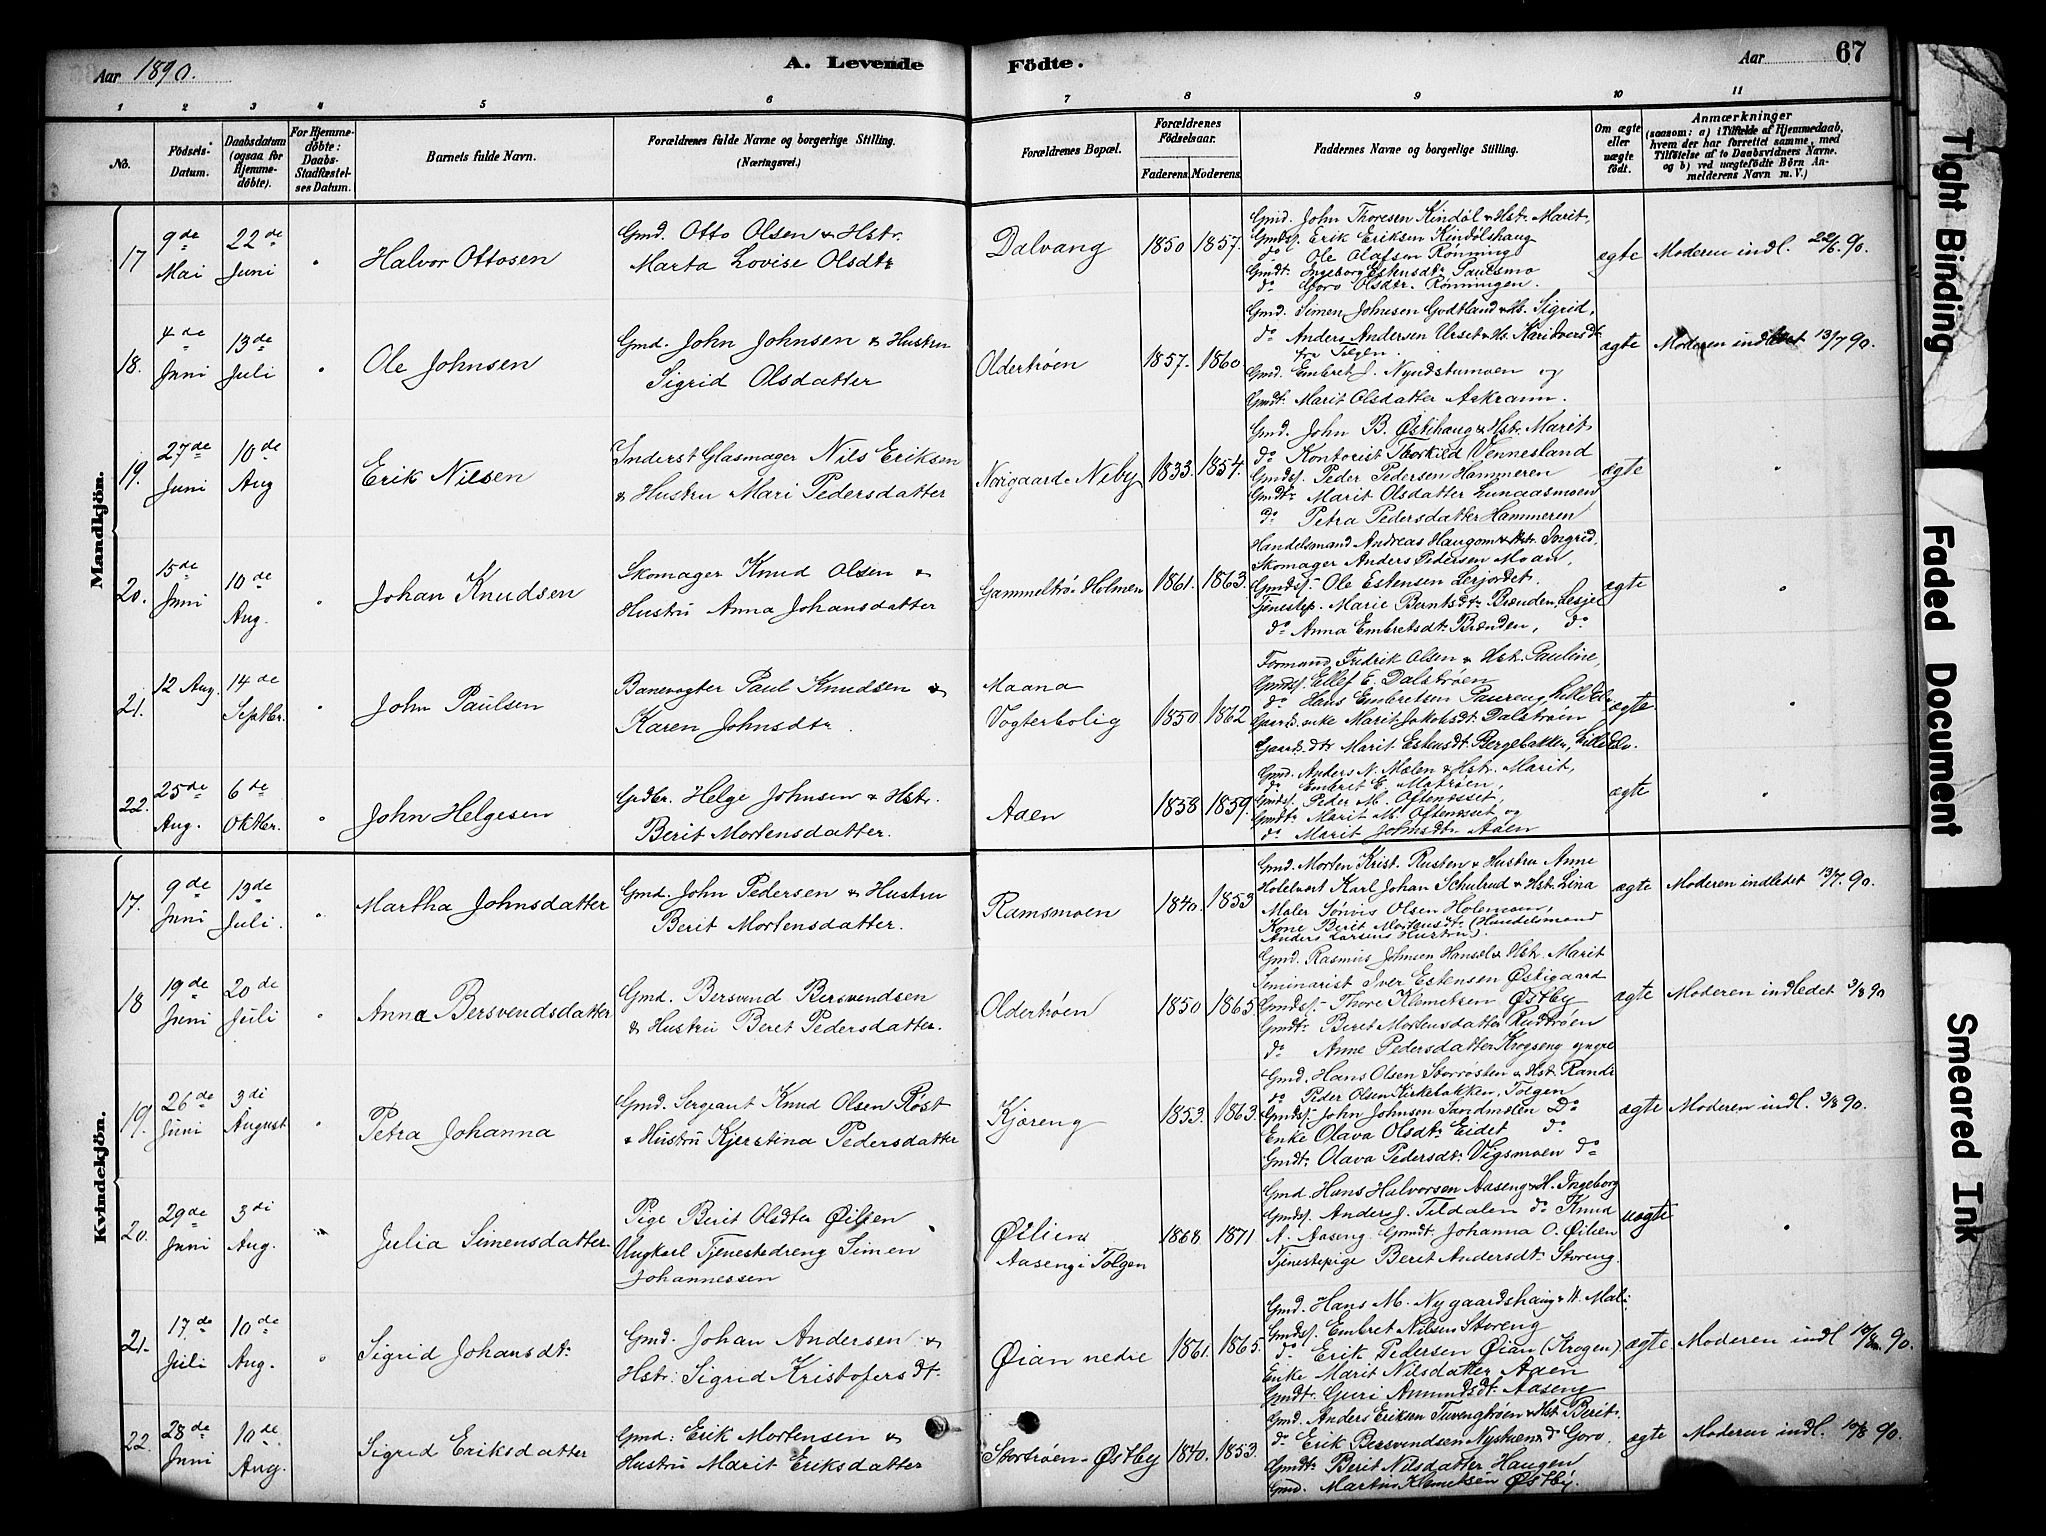 Aar 1890.
A. Levende Födte.
Aar
67
1 2 3 4 5 6 7 8 9 10 11
No.
Födsels-Datum.
Daabsdatum (ogsaa for Hjemmedöbte).
For Hjemmedöbte: Daabs-Stadfæstelses Datum.
Barnets fulde Navn.
Forældrenes fulde Navne og borgerlige Stilling. (Næringsvei.)
Forældrenes Bopæl.
Forældrenes Födselsaar.
Faderens. Moderens.
Faddernes Navne og borgerlige Stilling.
Om ægte eller uægte födt.
Anmærkninger
(saasom: a) i Tilfælde af Hjemmedaab, hvem der har forrettet samme, med Tilföielse af to Daabsvidners Navne. og b) ved uægtefödte Börn Anmelderens Navn m. V.)
Mandkjön.
17 9de Mai 22de Juni " Halvor Ottosen
Gmd. Otto Olsen & Hstr.
Marta Lovise Olsdtr
Dalvang 1850 1857.
Gmd. John Thoresen Kindöl & Hstr. Marit,
Gmdsf. Erik Eriksen Kindölshaug
do Ole Olafsen Rønning
Gmdt. Ingeborg Estensdtr Paulsmo
do Goro Olsdtr. Rønningen.
ægte Moderen indl. 22/6 90.
18. 4de Juni 13de Juli " Ole Johnsen
Gmd. John Johnsen & Hustru
Sigrid Olsdatter
Oldertrøen 1857. 1860
Gmd. Simen Johnsen Godtland & Hs. Sigrid,
do Anders Andersen Urset & Hs. Kari
fra Tolgen.
Gmd. Embret J. Nyndstumoen og
Gmdt. Marit Olsdatter Askrann.
ægte Moderen indledet 13/7 90.
19. 27de Juni 10de Aug Erik Nilsen
Inderst Glasmager Nils Eriksen
& Hustru Mari Pedersdatter
Norgaard Neby 1833. 1854.
Gmd. John B. Østihaug & Hstr. Marit
do Kontorist Thorkild Vennesland
Gmdsf. Peder Pedersen Hammeren
Gmdtr Marit Olsdatter Lunaasmoen
do Petra Pedersdatter Hammeren
ægte "
20. 15de Juni 10de Aug. " Johan Knudsen
Skomager Knud Olsen &
Hustru Anna Johansdatter
Gammeltrø. Holmen 1861. 1863.
Handelsmand Andreas Haugom & Hstr. Ingrid,
Skomager Anders Pedersen Moan,
Gmdsf. Ole Estensen Lerjordet.
Tjenestep. Marie Berntsdtr Brænden, Lesje
do Anna Embretsdtr Brænden, do
ægte "
21. 12 Aug. 14de Septbr. " John Paulsen
Banevogter Paul Knudsen &
Karen Johnsdtr.
Maana
Vogterbolig 1850 1862
Formand Fredrik Olsen & Hstr. Pauline,
Gmdsf. Ellef E. Dalstrøen
do Hans Embretsen Paureng, Lille Elv
Gaards. enke Marit Jakobsdt. Dalstrøen
Gaards. dtr Marit Estensdt. Bergebakken, Lille Elv.
ægte "
22. 25de Aug. 6te Oktbr. " John Helgesen
Grdbr. Helge Johnsen & Hstr.
Berit Mortensdatter.
Aaen 1858 1859.
Gmd. Anders N. Mælen & Hstr. Marit,
do Embrit E. Motrøen,
Gmdsf. Peder M. Oftenæsset,
Gmdt. Marit M. Oftenæsset, og
do Marit Johnsdt. Aaen
ægte "
Kvindekjön.
17. 9de Juni 13de Juli. " Martha Johnsdatter
Gmd. John Pedersen & Hustru
Berit Mortensdatter.
Ramsmoen 1840. 1853
Gmd. Morten Krist. Rusten & Hustru Anne
Hotelvert Karl Johan Schulrud & Hst. Lina
Maler Sönvis Olsen Holemoen,
Kone Berit Mortensdt. (Handelsmand
Anders Larsens Hustru).
ægte Moderen indledet 13/7. 90.
18 19de Juni 20de Juli " Anna Bersvendsdatter
Gmd. Bersvend Bersvendsen
& Hustru Beret Pedersdatter.
Oldertrøen 1850 1865
Gmd. Rasmus Johnsen Hansel & Hstr. Marit
Seminarist Iver Estensen Østigaard
Gmdsf. Thore Klemetsen Østby
Gmdt. Berit Mortensdatter Rudtrøen
do Anne Pedersdatter Krogseng yngre
ægte Moderen indledet 3/8 90
19. 26de Juni 3di August " Petra Johanna
Gmd. Sergeant Knud Olsen Røst
& Hustru Kjerstina Pedersdatter
Kjæreng 1853. 1863.
Gmd. Hans Olsen Storrøsten & Hst. Randi
do Peder Olsen Kirkebakken, Tolgen
Gmdsf. John Johnsen Sandmælen Do
Enke Olava Olsdtr Eidet do
Gmdt. Olava Pedersdt. Vigsmoen do
ægte Moderen indl. 3/8 90.
20. 29de Juni 3di Aug. " Julia Simensdatter
Pige Berit Olsdtr Øilien
Ungkarl Tjenestedreng Simen
Johannessen
Øilien
Aaseng i Tolgen 1868 1871
Gmd. Hans Halvorsen Aaseng & H. Ingeborg
Gmdsf. Anders J. Tildalen do Knud
A. Aaseng Gmdt. Johanna O. Øilien
Tjenestepige Berit Andersdt. Storeng.
uægte "
21. 17de Juli 10de Aug. " Sigrid Johansdt.
Gmd. Johan Andersen &
Hstr: Sigrid Kristofersdt.
Øian nedre 1861. 1865.
Gmd. Hans M. Nygaardshaug & H. Mali,
Gmdsf. Embret Nilsen Storeng
do Erik Pedersen Øian (Krogen)
Enke Marit Nilsdatter Aaen
Gmdt. Guri Amundsdt. Aaseng
ægte Moderen indl 10/8 90.
22. 28de Juni 10de Aug. Sigrid Eriksdatter
Gmd: Erik Mortensen &
Hustru Marit Eriksdatter
Stortrøen. Østby 1840. 1853.
Gmd. Anders Eriksen Tuvengtrøen & Hst. Berit.
do Erik Bersvendsen Nystuen & do Goro.
Gmdt. Berit Nilsdatter Haugen
Gmd. Martin Klemetsen Østby.
ægte Moderen indl. 10/8 90.
Tight Binding
Faded Document
Smeared Ink